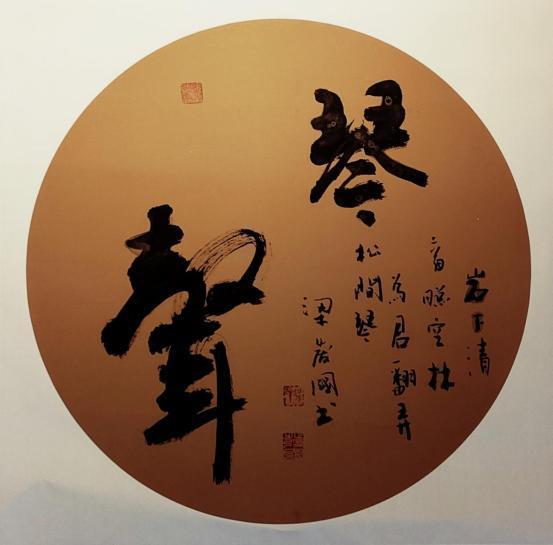 琴聲
岩下清
音空林
為君一翻弄
松間琴
梁國书